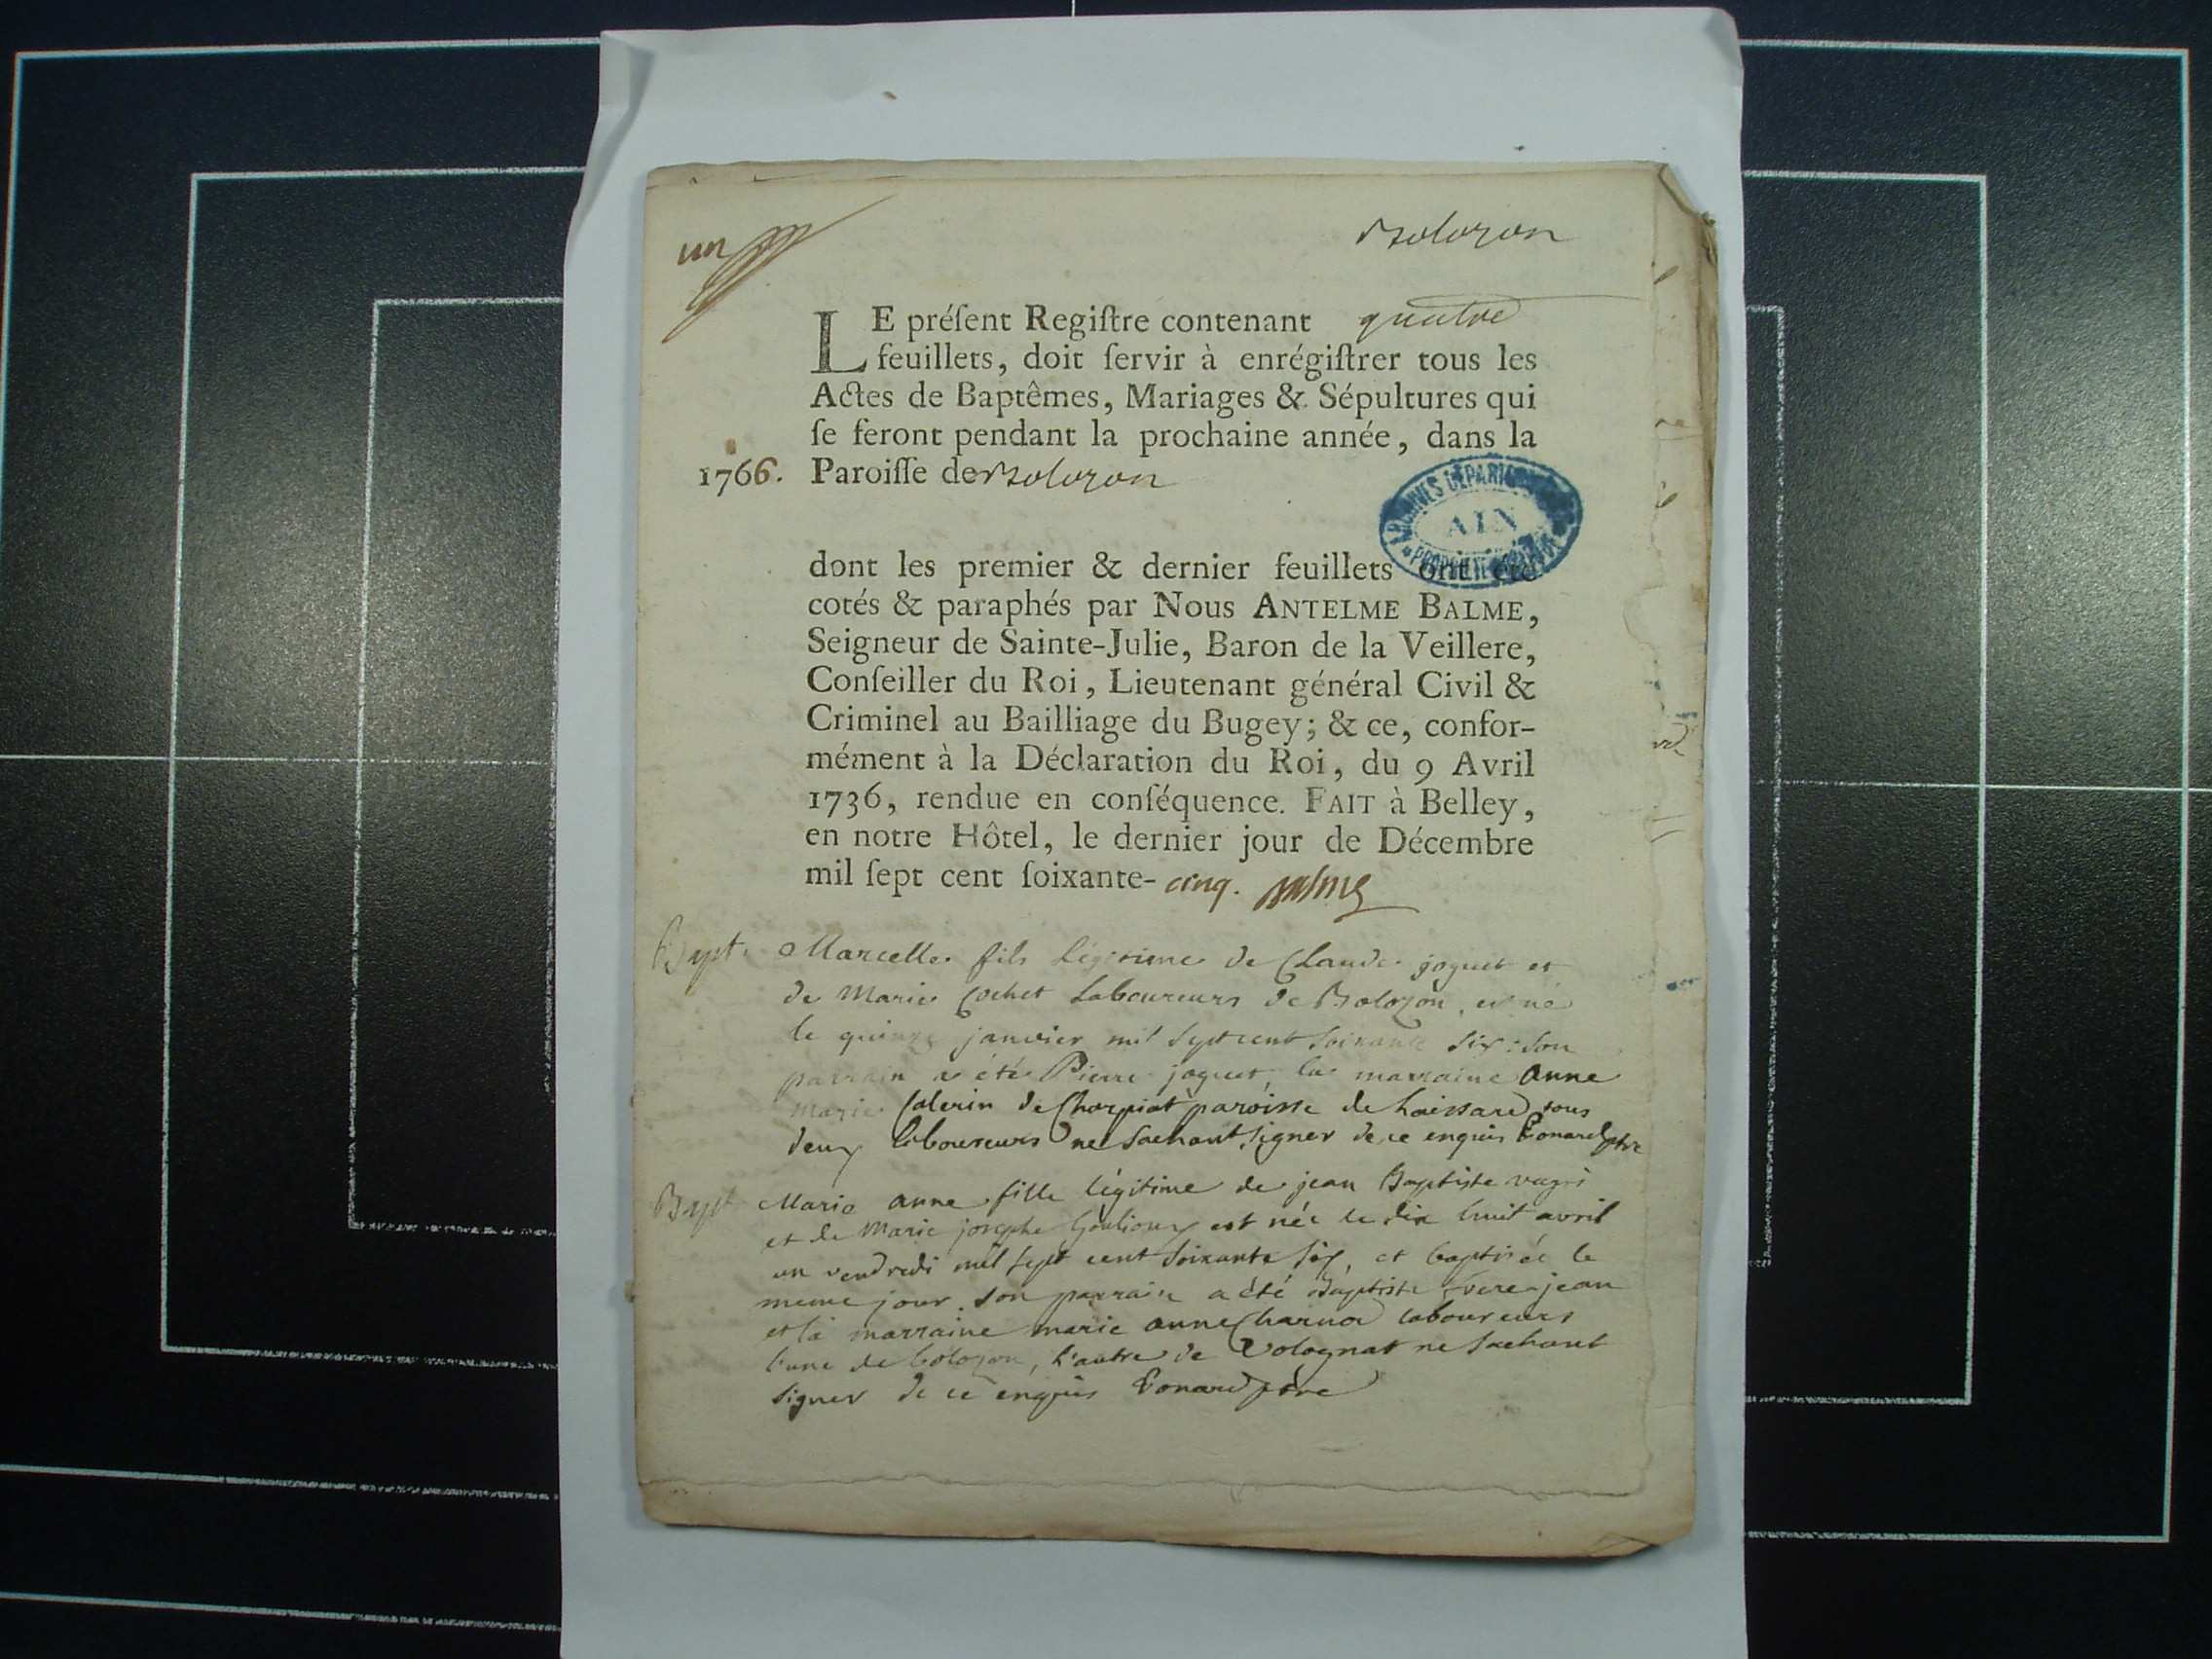 un
Bolozon
LE préſent Regiſtre contenant quatre
feuillets, doit ſervir à enrégiſtrer tous les
Actes de Baptêmes, Mariages & Sépultures qui
ſe feront pendant la prochaine année, dans la
1766. Paroiſſe de Bolozon
ARCHIVES DÉPARTEMENTALES
AIN
dont les premier & dernier feuillets ont été
cotés & paraphés par Nous ANTELME BALME,
Seigneur de Sainte-Julie, Baron de la Veillere,
Conſeiller du Roi, Lieutenant général Civil &
Criminel au Bailliage du Bugey; & ce, confor-
mément à la Déclaration du Roi, du 9 Avril
1736, rendue en conſéquence. FAIT à Belley,
en notre Hôtel, le dernier jour de Décembre
mil ſept cent ſoixante-cinq. Balme
Bapt. Marcelle fils légitime de Claude joguet et
de Marie Cochet Laboureurs de Bolozon, est né
le quinze janvier mil sept cent soixante six : son
parrain a été Pierre joguet, la marraine anne
marie de Charpiat paroisse de tous
deux laboureurs ne sachant signer de ce enquis ptre
Bapt Marie anne fille légitime de jean Baptiste
et de Marie josephe est née le dix huit avril
un vendredi mil sept cent soixante six, et baptisée le
meme jour. son parrain a été Baptiste jean
et la marraine marie anne laboureurs
l'une de bolozon, l'autre de Volognat ne sachant
signer de ce enquis ptre